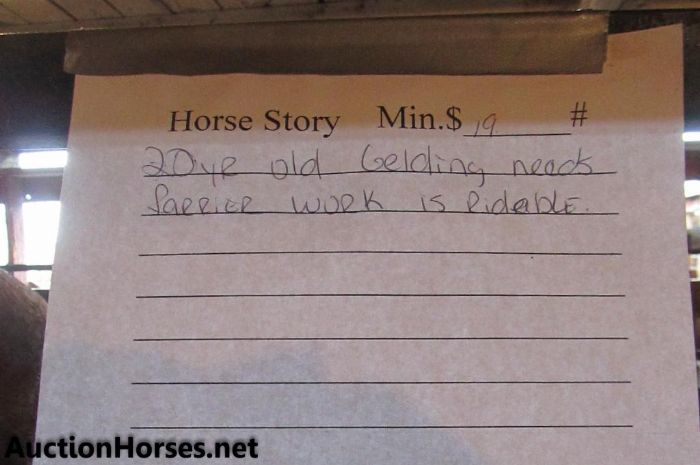 Horse Story Min.$ 19 #
20 yr old Gelding needs
farrier work is Ridable.
AuctionHorses.net